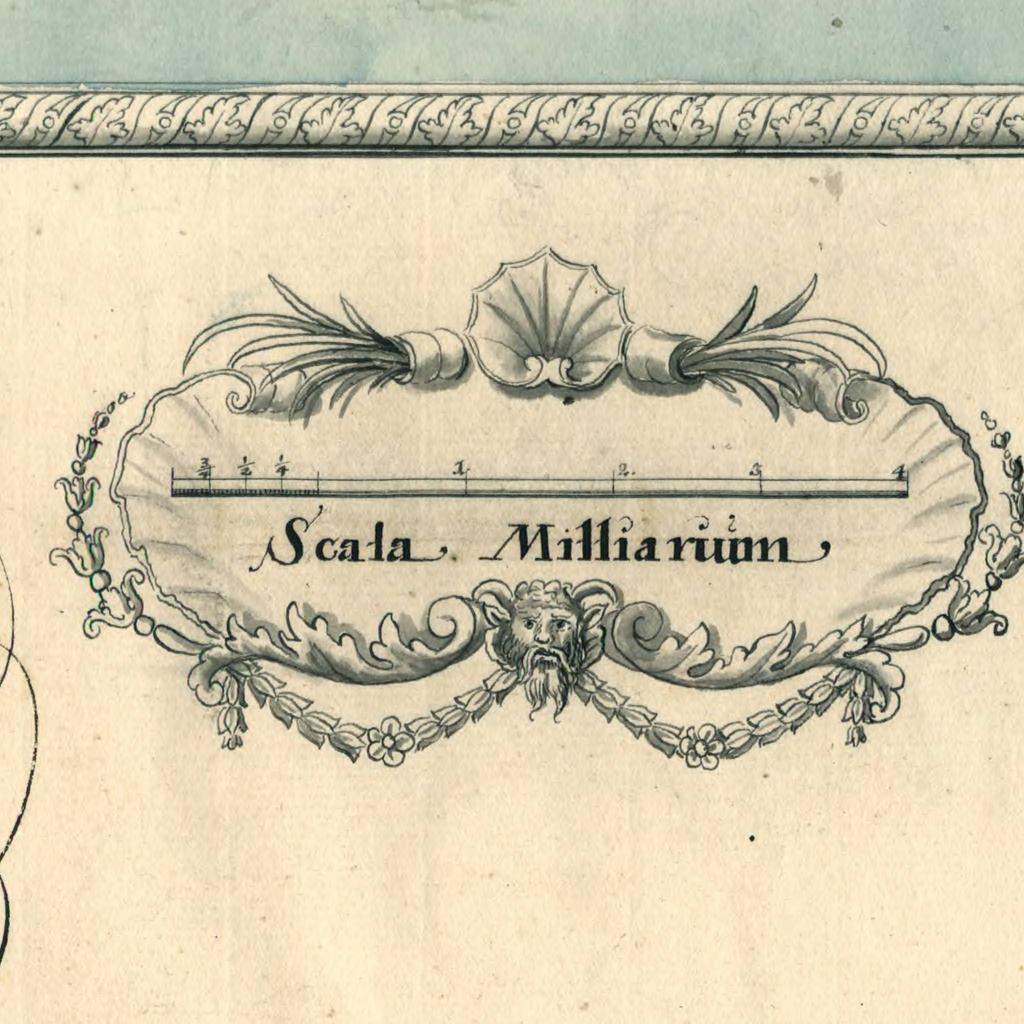 ¾ ½ ¼ 1. 2. 3 4
Scala Milliarium